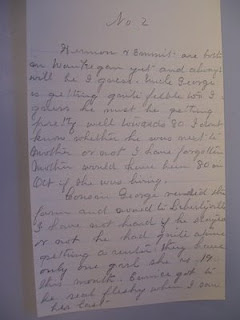 No 2
Vernon & Emmit are both
on Waukegan yet and always
will be I guess. Uncle George
is getting quite feeble too. I
guess he must be getting
pretty well towards 80. I don't
know whether he was next to
Mother or not I have forgotten
Mother would have been 80 in
Oct if she was living.
Cousin George rented the
farm and moved to Libertyville
I have not heard if he
or not. he had quite a time
getting a renter. they have
only one girl she is 19.
this month. Eunice got to
be real fleshy when I saw
her last